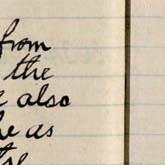 from
the
also
he as